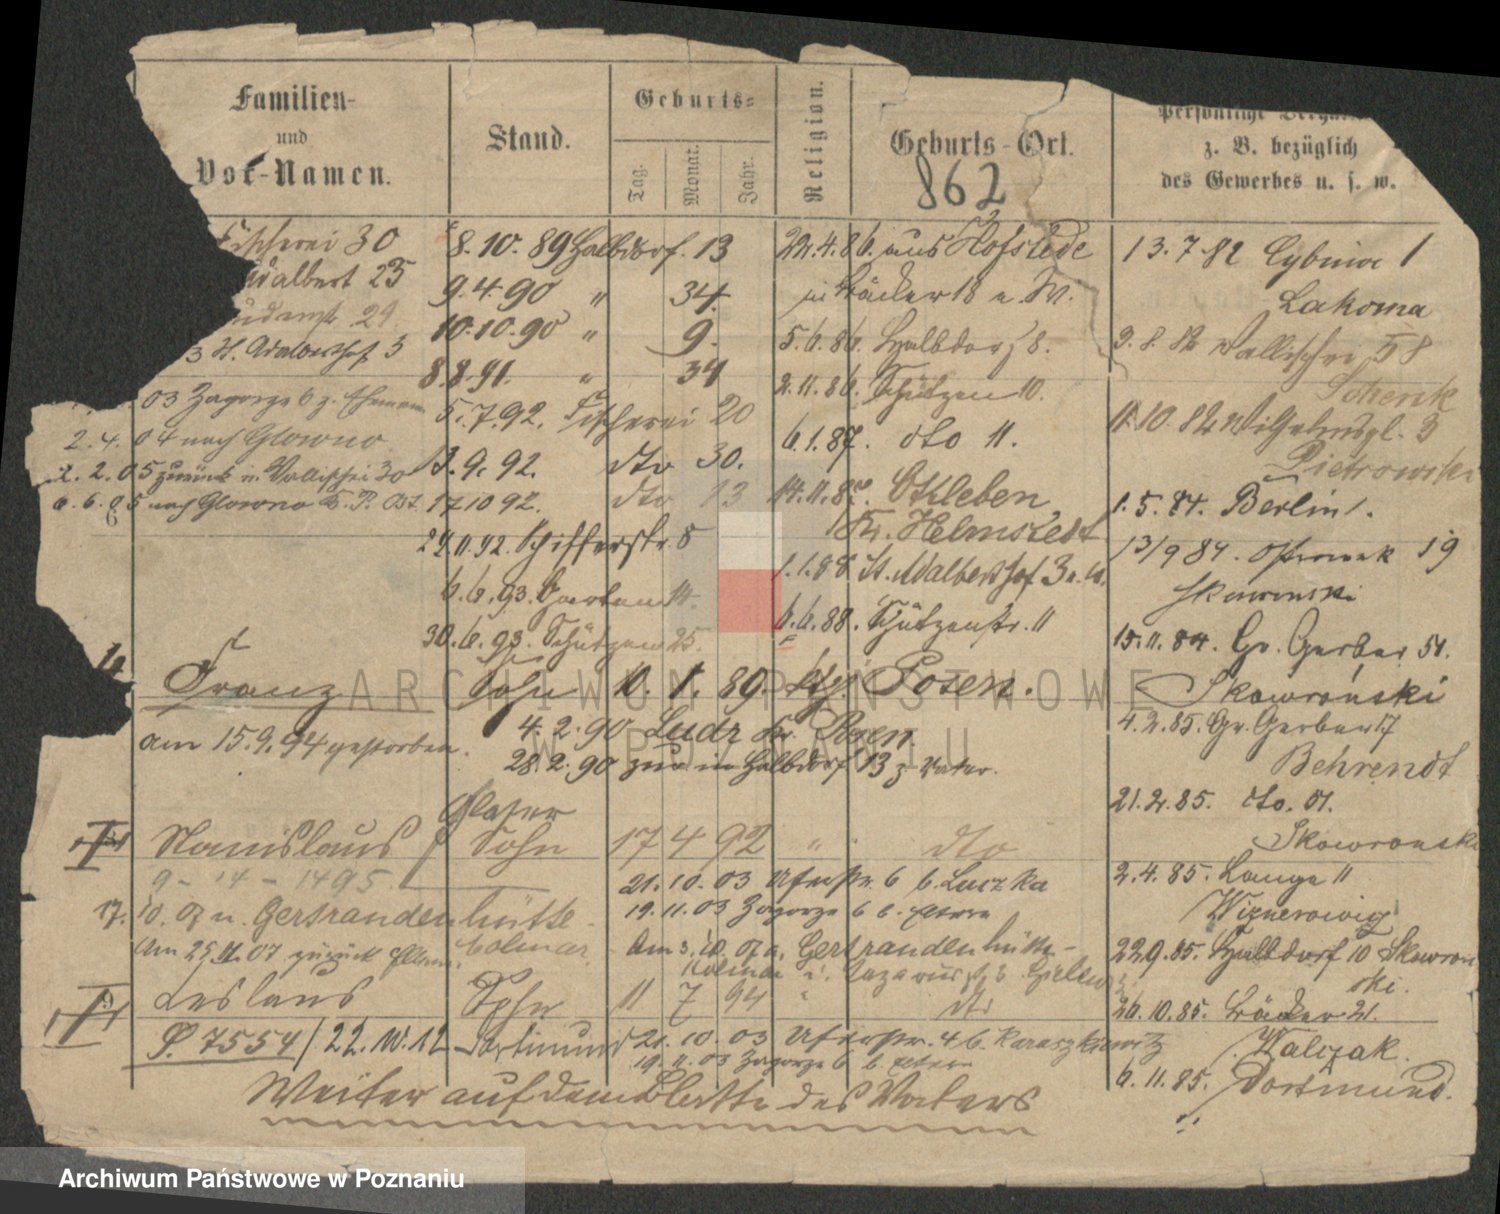 Familien-
und
Vor-Namen.
Stand.
Geburts-
Tag.
Monat.
Jahr.
Religion.
Geburts-Ort.
862
z. B. bezüglich
des Gewerbes u. s. w.
Fischerei 30
Adalbert 23
29
3 St. Adalberthof 3
03 Zagorze 6 z.
2.4.04 nach Glowno
2.2.05 zurück n. Wallischei 30
6.6.05 nach Glowno Kr. P. Ost.
8.10.89 Halbdorf. 13
9.4.90 " 34.
10.10.90 " 9.
8.8.91. " 34
5.7.92. Fischerei 20
3.9.92. dto 30.
17 10 92. dto 13
29.11.92. Schifferstr. 8
6.6.93. Garten 14.
30.6.93. Schützen 25.
22.4.86. aus Hofstede
in Bäcker 18 a. W.
5.6.86. Halbdorf 8.
2.11.86. Schützen 10.
6.1.87. dto 11.
14.11.87. Otkleben
Kr. Helmstedt
1.1.88 St. Adalberthof 3
6.6.88. Schützenstr. 11
13.7.82 Cybina 1
Lakoma
3.8.82 Wallischei 58
Schenk
11.10.82 Wilhelmspl. 3
Pietrowski
1.5.84. Berlin 1.
13/9 84. Ostrowek 19
Skowronski
15.11.84. Gr. Gerber 51.
Skowroński
4.2.85. Gr. Gerber 17
Behrendt
21.2.85. dto. 51.
Skowronsk
2.4.85. Lange 11
22.9.85. Halbdorf 10 Skowron
ski.
26.10.85. Bäcker 21.
Walczak.
6.11.85. Dortmund.
Franz Sohn 10. 1. 89. Posen.
am 15.9.94 gestorben.
4.2.90 Ludz Kr. Posen
28.2.90 zur. in Halbdorf 13 z. Vater.
Glaser
Stanislaus Sohn 17 4 92 " dto
9 - 14 - 1495.
21.10.03 Uferstr. 6 b. Luczka
19.11.03 Zagorze 6 b. Eltern
17. 10. 07 n. Gertraudenhütte
Colmar.
Am 25.11.07 zurück
Am 3.10.07 a. Gertraudenhütte-
Kolmar
Leslaus Sohn 11 7 94 " dto
P. 7554/22.10.12 Dortmund
21.10.03 Uferstr. 4 b. Karaszkiewitz
19.11.03 Zagorze 6 b. Eltern
Weiter auf dem Blatte des Vaters
ARCHIWUM PAŃSTWOWE
W POZNANIU
Archiwum Państwowe w Poznaniu